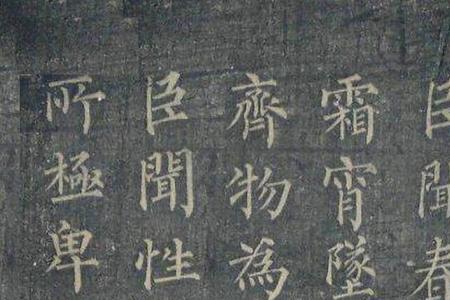 臣聞春
霜宵墜
齊物為
臣聞性
所極卑